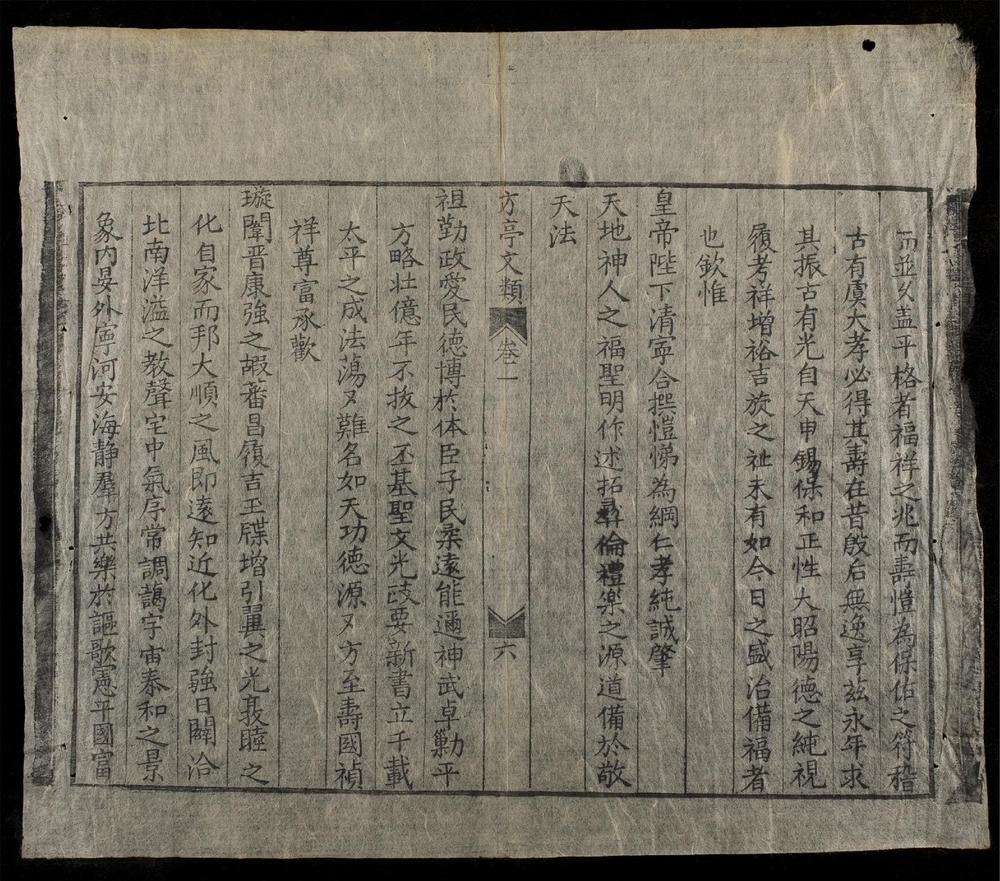 而並久盖平格者福祥之兆而壽愷為保佑之符稽
古有虞大孝必得其壽在昔殷后無逸享茲永年求
其振古有光自天申錫保和正性大昭陽德之純視
履考祥增裕吉旋之祉未有如今日之盛治備福者
也欽惟
皇帝陛下清寧合撰愷悌為綱仁孝純誠肇
天地神人之福聖明作述拓彛倫禮樂之源道備於敬
天法
方亭文類
卷二
六
祖勤政愛民德博於体臣子民柔遠能邇神武卓勦平
方略壯億年不拔之丕基聖文光誥要新書立千載
太平之成法蕩〻難名如天功德源〻方至壽國禎
祥尊富承歡
璇闈晋康強之嘏蕃昌履吉玉牒增引翼之光敦睦之
化自家而邦大順之風即遠知近化外封強日闢洽
北南洋溢之教聲宅中氣序常調藹宇宙泰和之景
象內晏外寧河安海静羣方共樂於謳歌憲平國富